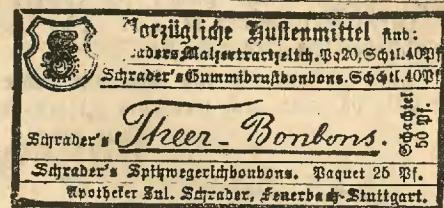 Vorzügliche Hustenmittel sind:
Schraders Malzextractzeltch. Pq20, Schtl.40Pf
Schrader's Gummibrustbonbons. Schtl.40Pf
Schrader's Theer-Bonbons. Schachtel 50 Pf.
Schrader's Spitzwegerichbonbons. Paquet 25 Pf.
Apotheker Jul. Schrader, Feuerbach-Stuttgart.